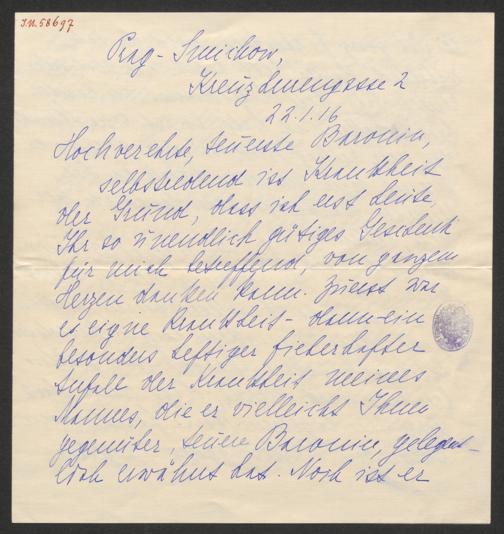 I.N. 58697
Prag - Smichow,
Kreuzherrengasse 2
22.1.16
Hochverehrte, teuerste Baronin,
selbstredend ist Krankheit
der Grund, dass ich erst heute,
Ihr so unendlich gütiges Geschenk
für mich betreffend, von ganzem
Herzen danken kann. Zuerst war
es eigne Krankheit - dann - ein
besonders heftiger fieberhafter
Anfall der Krankheit meines
Mannes, die er vielleicht Ihnen
gegenüber, teure Baronin, gelegent-
lich erwähnt hat. Noch ist er